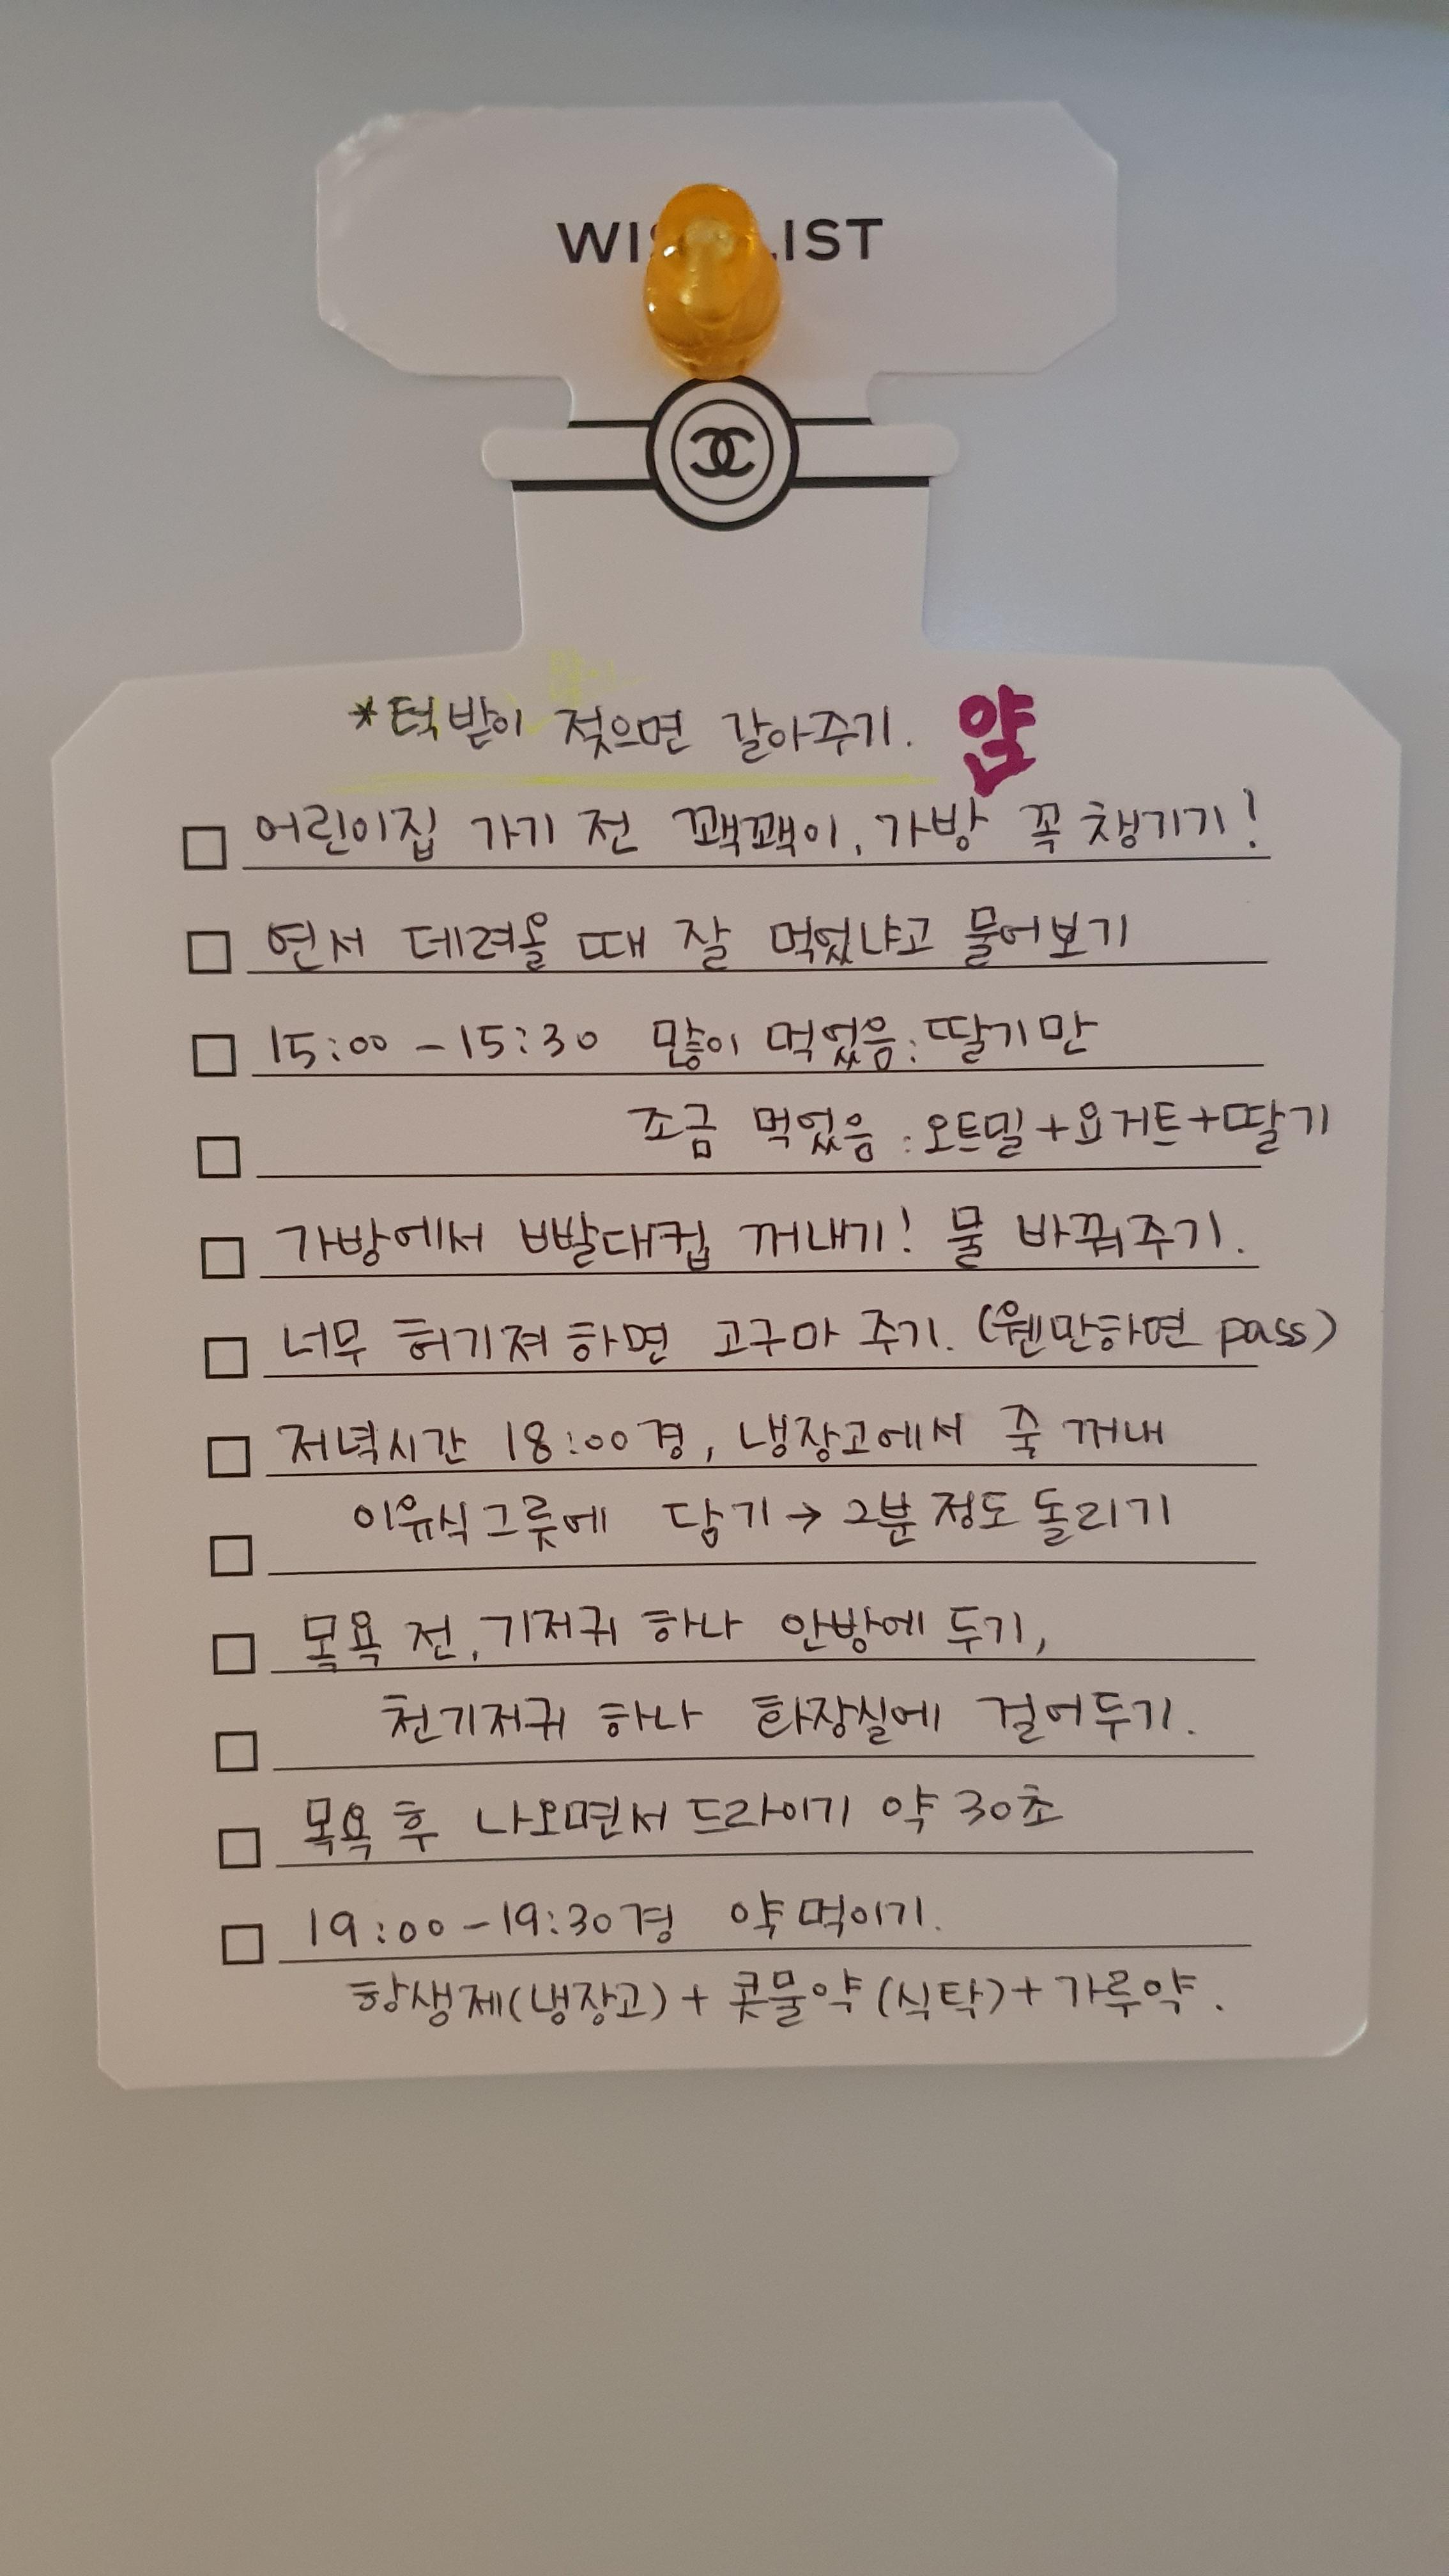 WIS LIST
*턱받이 젖으면 갈아주기. 약
어린이집 가기 전 꽥꽥이, 가방 꼭 챙기기!
연서 데려올 때 잘 먹었냐고 물어보기
15:00 - 15:30 많이 먹었음: 딸기만
조금 먹었음: 오트밀+요거트+딸기
가방에서 빨대컵 꺼내기! 물 바꿔주기.
너무 허기져하면 고구마 주기. (웬만하면 pass)
저녁시간 18:00경, 냉장고에서 죽 꺼내
이유식그릇에 담기 → 2분정도 돌리기
목욕 전, 기저귀 하나 안방에 두기,
천기저귀 하나 화장실에 걸어두기.
목욕 후 나오면서 드라이기 약 30초
19:00-19:30경 약 먹이기.
항생제(냉장고) + 콧물약 (식탁)+ 가루약.